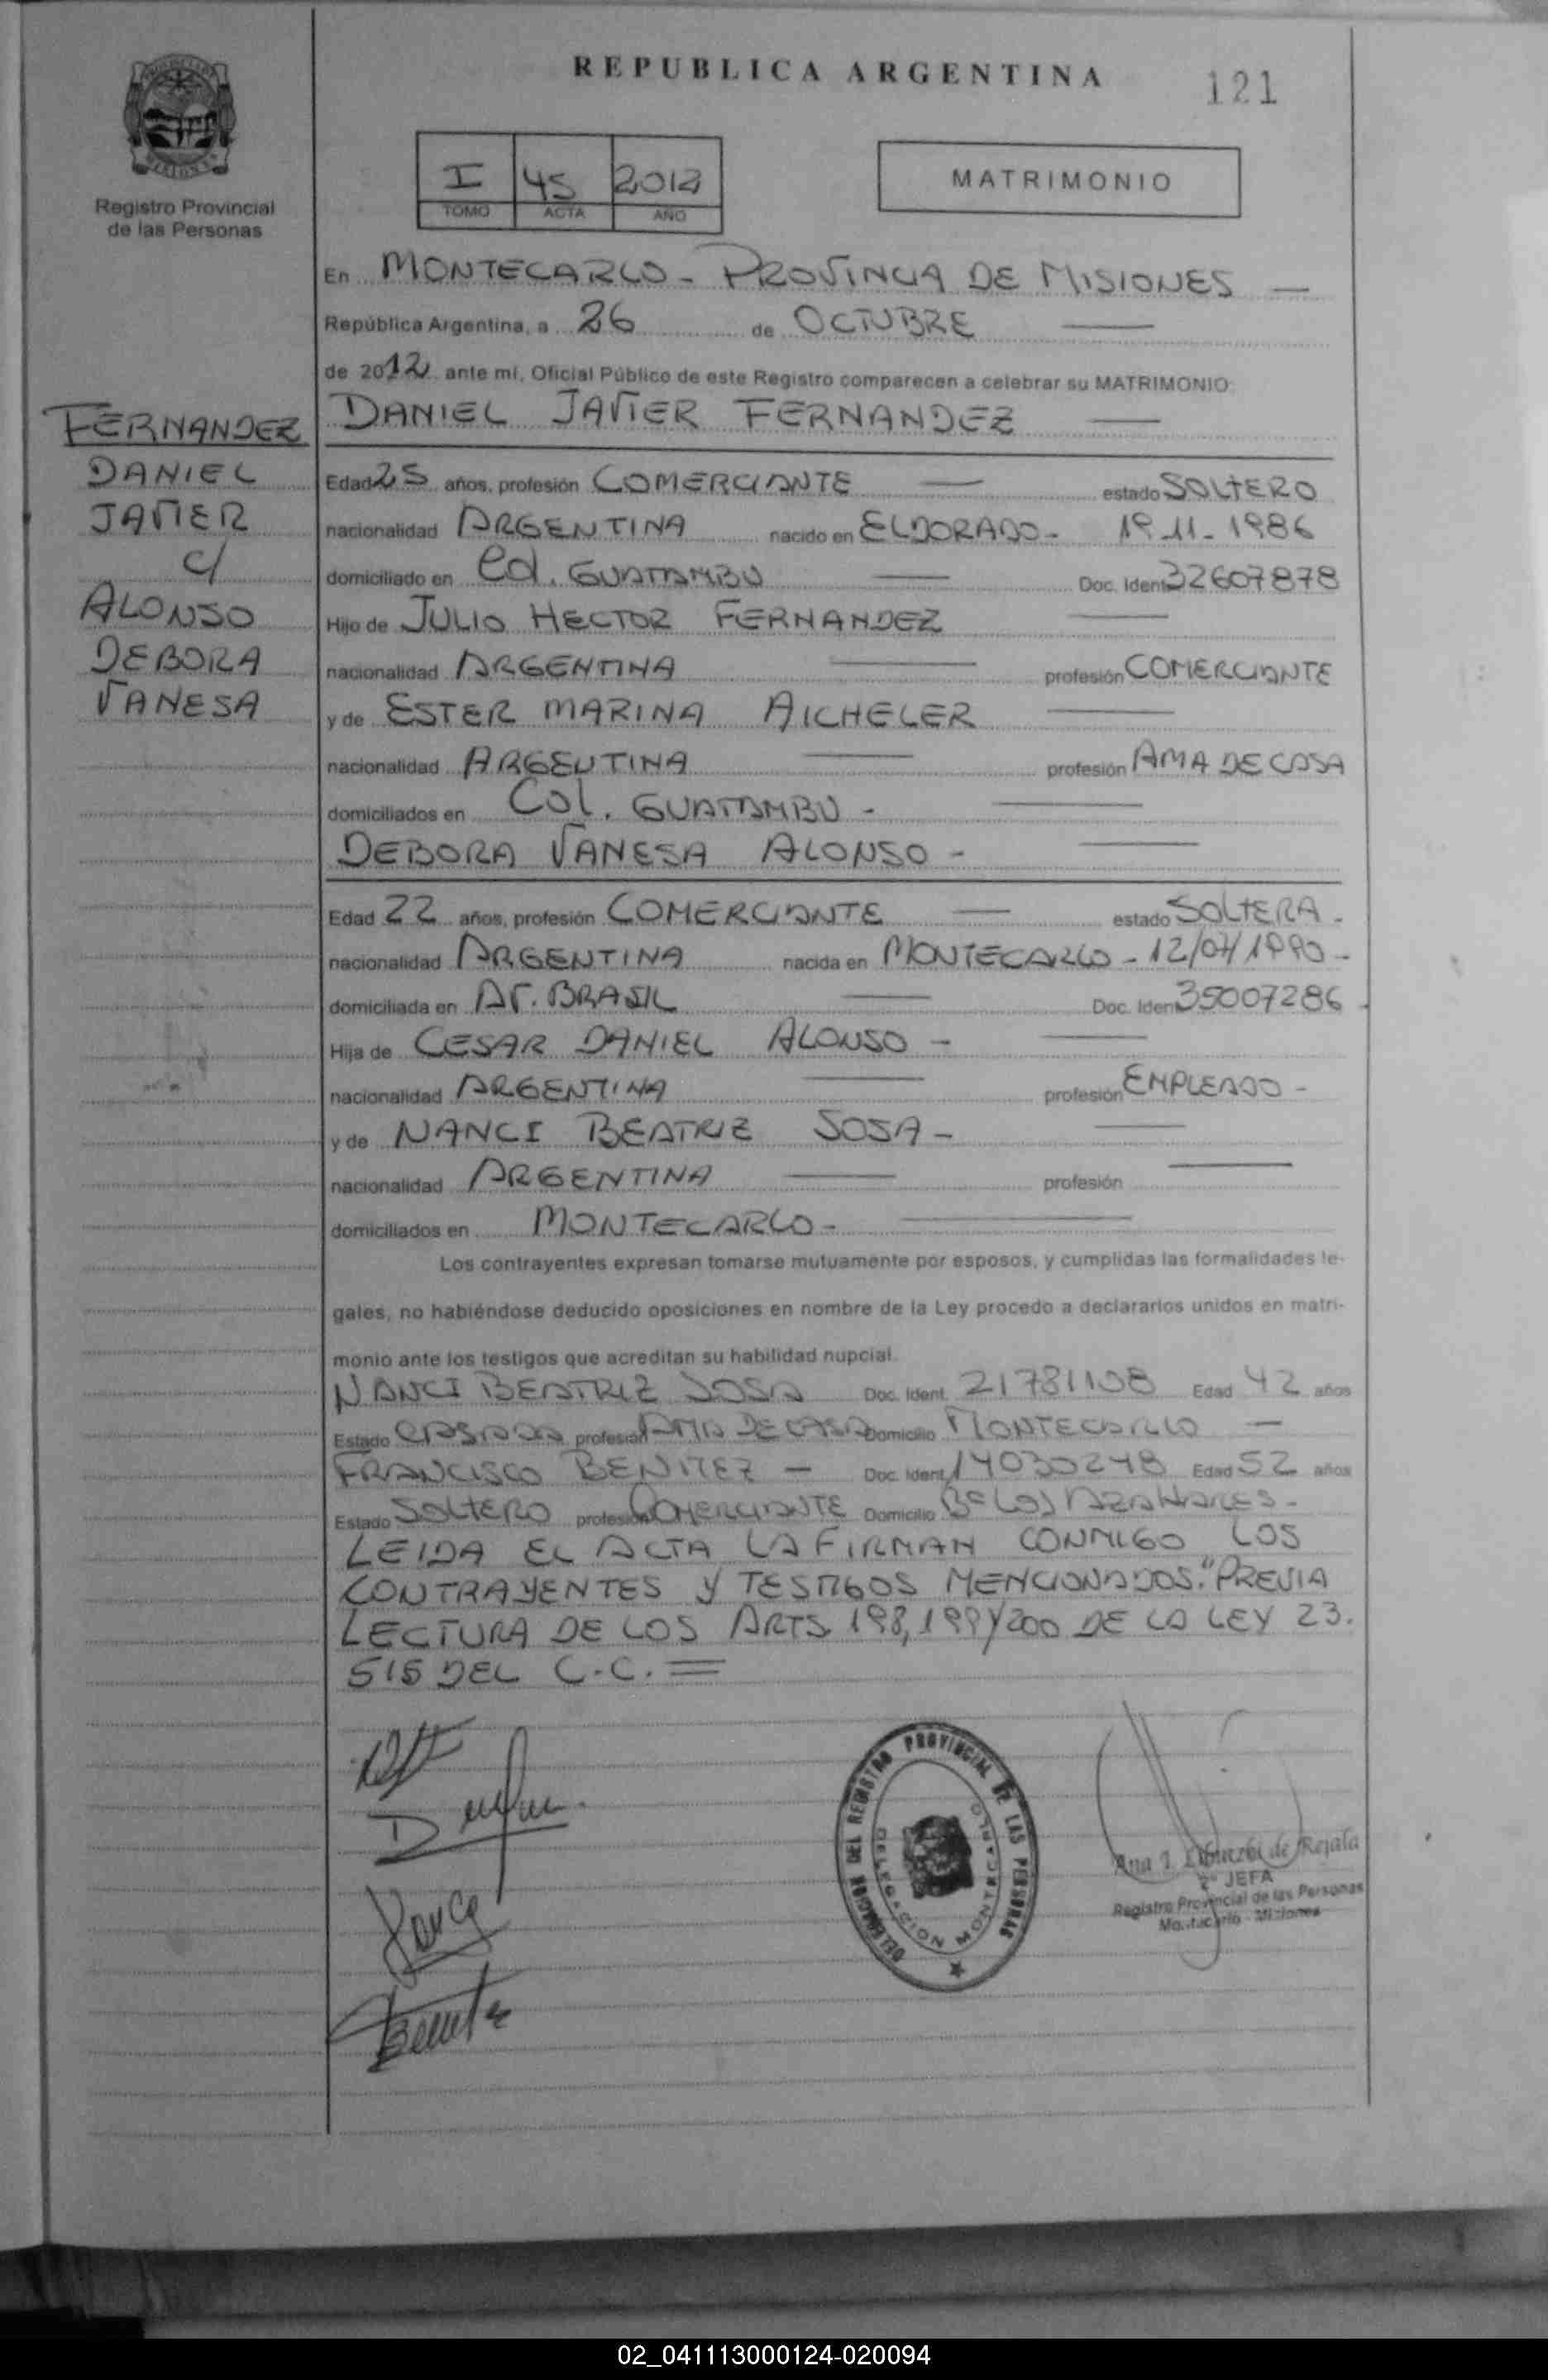 REPUBLICA ARGENTINA
121
Registro Provincial
de las Personas
I 45 2012
TOMO ACTA AÑO
MATRIMONIO
En MONTECARLO - PROVINCIA DE MISIONES —
República Argentina, a 26 de OCTUBRE —
de 2012 ante mí, Oficial Público de este Registro comparecen a celebrar su MATRIMONIO:
DANIEL JAVIER FERNANDEZ —
FERNANDEZ
DANIEL
JAVIER
c/
ALONSO
DEBORA
VANESA
Edad 25 años, profesión COMERCIANTE — estado SOLTERO
nacionalidad ARGENTINA nacido en ELDORADO - 19-11-1986
domiciliado en Col. GUATAMBU — Doc. Ident 32607878
Hijo de JULIO HECTOR FERNANDEZ —
nacionalidad ARGENTINA — profesión COMERCIANTE
y de ESTER MARINA AICHELER —
nacionalidad ARGENTINA — profesión AMA DE CASA
domiciliados en Col. GUATAMBU - —
DEBORA VANESA ALONSO - —
Edad 22 años, profesión COMERCIANTE — estado SOLTERA -
nacionalidad ARGENTINA nacida en MONTECARLO - 12/07/1990 -
domiciliada en AV. BRASIL — Doc. Iden 35007286
Hija de CESAR DANIEL ALONSO - —
nacionalidad ARGENTINA — profesión EMPLEADO -
y de NANCI BEATRIZ SOSA - —
nacionalidad ARGENTINA — profesión —
domiciliados en MONTECARLO - —
Los contrayentes expresan tomarse mutuamente por esposos, y cumplidas las formalidades le-
gales, no habiéndose deducido oposiciones en nombre de la Ley procedo a declararlos unidos en matri-
monio ante los testigos que acreditan su habilidad nupcial.
NANCI BEATRIZ SOSA Doc. Ident. 21781108 Edad 42 años
Estado CASADA profesión AMA DE CASA Domicilio MONTECARLO —
FRANCISCO BENITEZ — Doc. Ident. 14030248 Edad 52 años
Estado SOLTERO profesión COMERCIANTE Domicilio Bº LOS AZAHARES -
LEIDA EL ACTA LA FIRMAN CONMIGO LOS
CONTRAYENTES Y TESTIGOS MENCIONADOS." PREVIA
LECTURA DE LOS ARTS 198, 199 Y 200 DE LA LEY 23.
515 DEL C.C. =
DELEGACION DEL REGISTRO PROVINCIAL DE LAS PERSONAS
DELEGACION MONTECARLO
Ana de Rejala
2º JEFA
Registro Provincial de las Personas
Montecarlo - Misiones
02_041113000124-020094